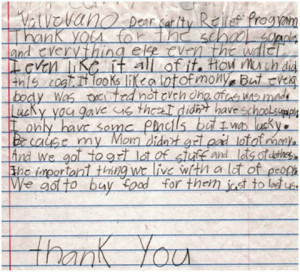 Valvevano Dear carity Relief Program
Thank you for the school soples
and everything else even the wallet
I even like it all of it. How much did
this cost it looks like a lot of mony. But every
body was excited not even one of us was mad.
Lucky you gave us these I didn't have school soples
I only have some pencils but I was lucky.
Because my Mom didn't get paid lot of mony.
And we got to get lot of stuff and lots of clothes
the important thing we live with a lot of people
We got to buy food for them just to last us.
thank You